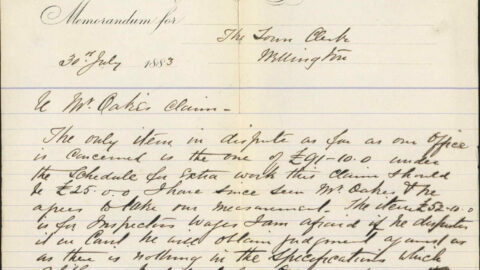 Memorandum for
The Town Clerk
Wellington
30th July 1883
Mr. Oakes Claim -
The only item in dispute as far as our Office
is concerned is the one of £91-10.0 under
the Schedule for Extra work this claim should
be £25.0.0, I have since seen Mr Oakes & he
agrees to take our measurement. The item £52-10.0
is for Inspectors Wages I am afraid if he disputes
it in Court he will obtain judgment against us
as there is nothing in the Specifications which